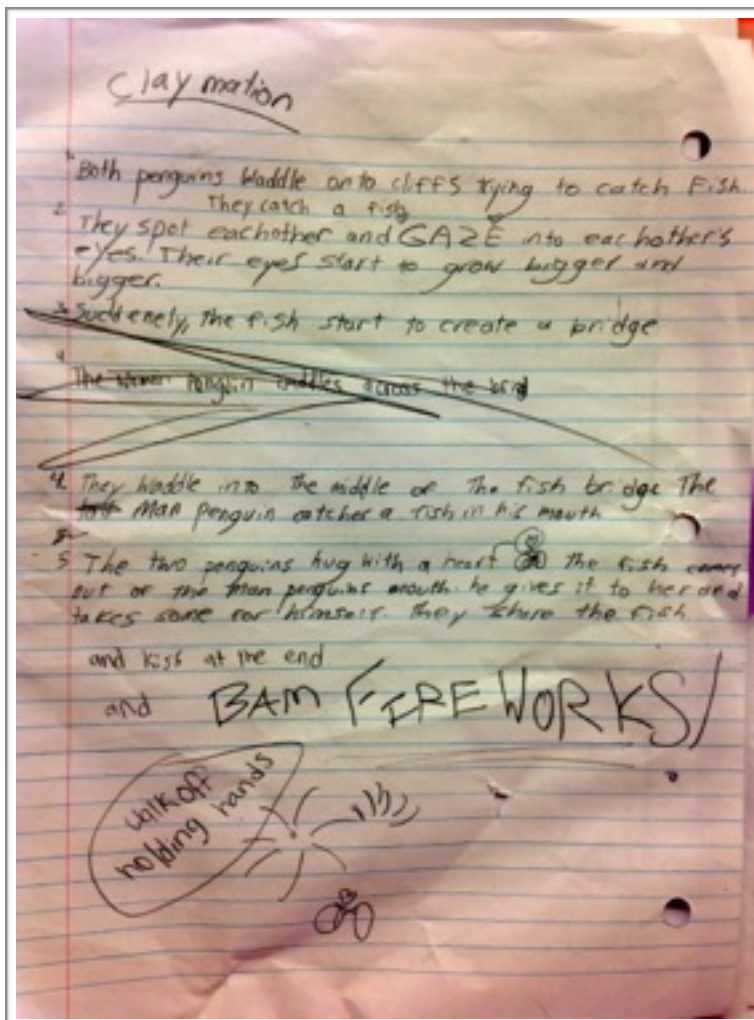 Claymation
1. Both penguins Waddle onto cliffs trying to catch Fish
They catch a fish
2. They spot eachother and GAZE into eachother's
eyes. Their eyes start to grow bigger and
bigger.
3. Suddenely, the fish start to create a bridge
4. The women Penguin waddles across the brid
4. They Waddle into the middle of the fish bridge The
Man Penguin catches a fish in his mouth
5 The two penguins hug with a heart the fish comes
out of the Man penguins mouth. he gives it to her and
takes some for himself. They share the fish
and kiss at the end
and BAM FIREWORKS!
walk off
holding hands